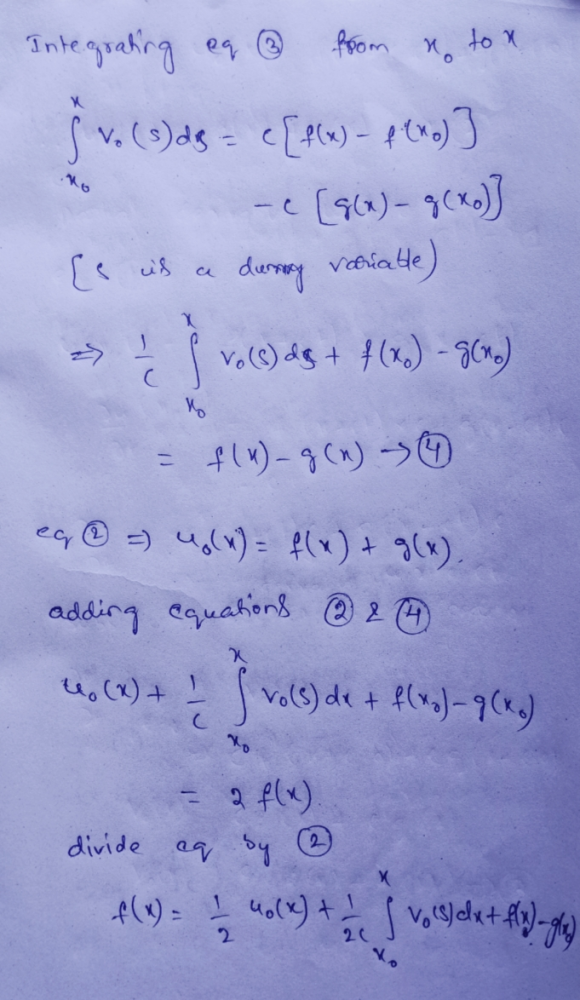 Integrating eq ③ from x₀ to x
∫ₓ₀ˣ v₀(s)ds = c[f(x) - f(x₀)]
-c [g(x) - g(x₀)]
[s is a dummy variable)
⇒ 1/c ∫ₓ₀ˣ v₀(s)ds + f(x₀) - g(x₀)
= f(x) - g(x) → ④
eq ② ⇒ u₀(x) = f(x) + g(x).
adding equations ② & ④
u₀(x) + 1/c ∫ₓ₀ˣ v₀(s)dx + f(x₀) - g(x₀)
= 2 f(x).
divide eq by ②
f(x) = 1/2 u₀(x) + 1/2c ∫ₓ₀ˣ v₀(s)dx + f(x) - g(x)